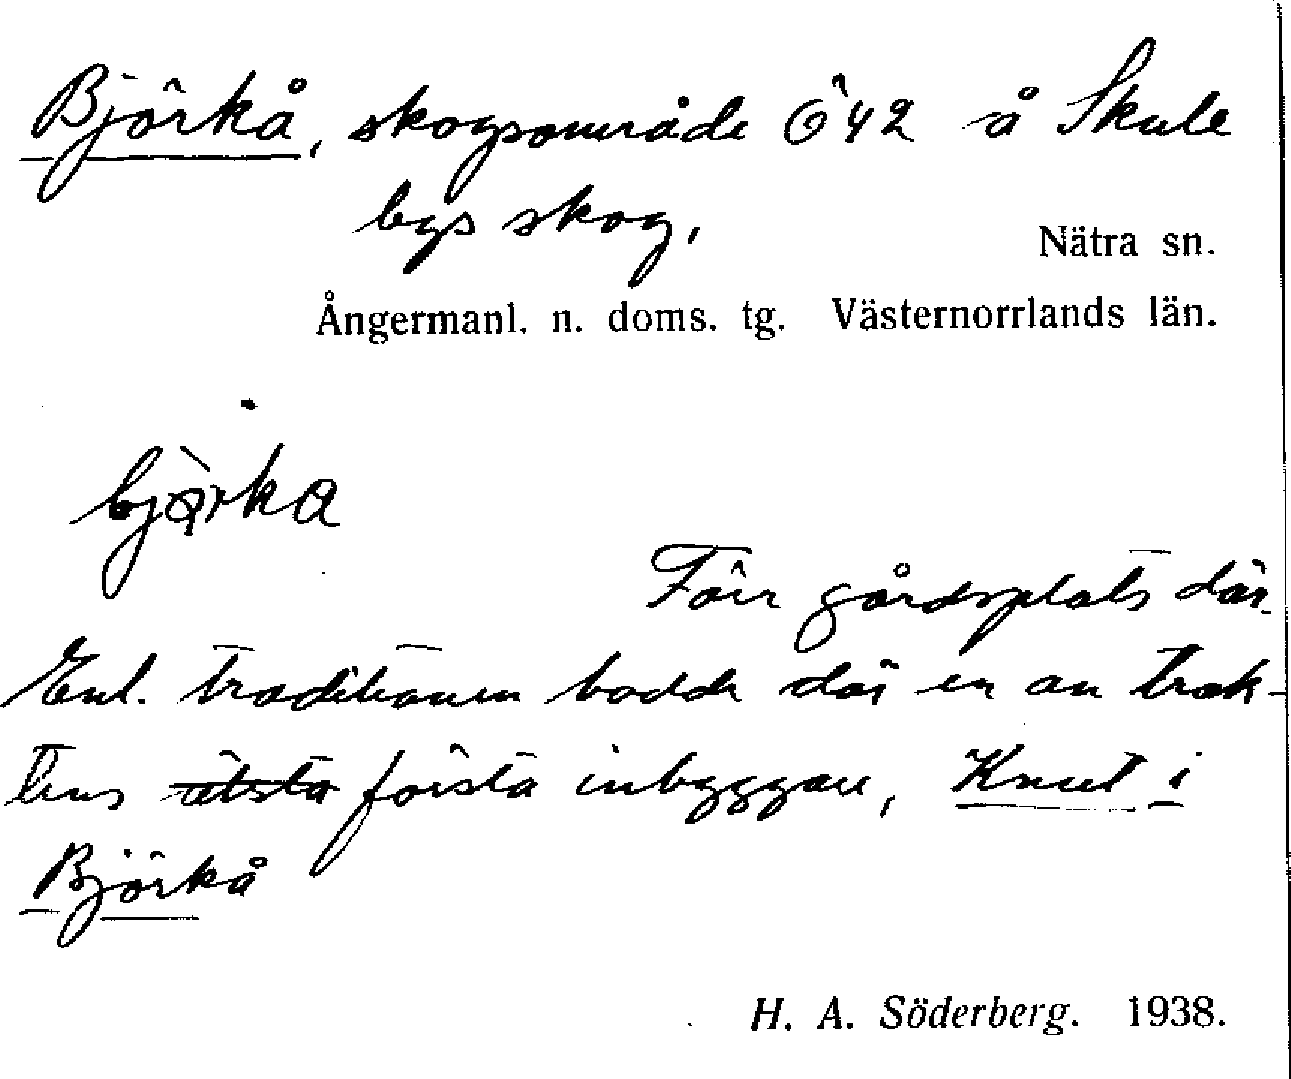 Björkå, skogsområde Ö42 å Skule
bys skog,
Nätra sn.
Ångermanl. n. doms. tg. Västernorrlands län.
Förr gårdsplats där.
Enl. traditionen bodde där en av trak-
tens första inbyggare, Knut i
Björkå
H. A. Söderberg. 1938.